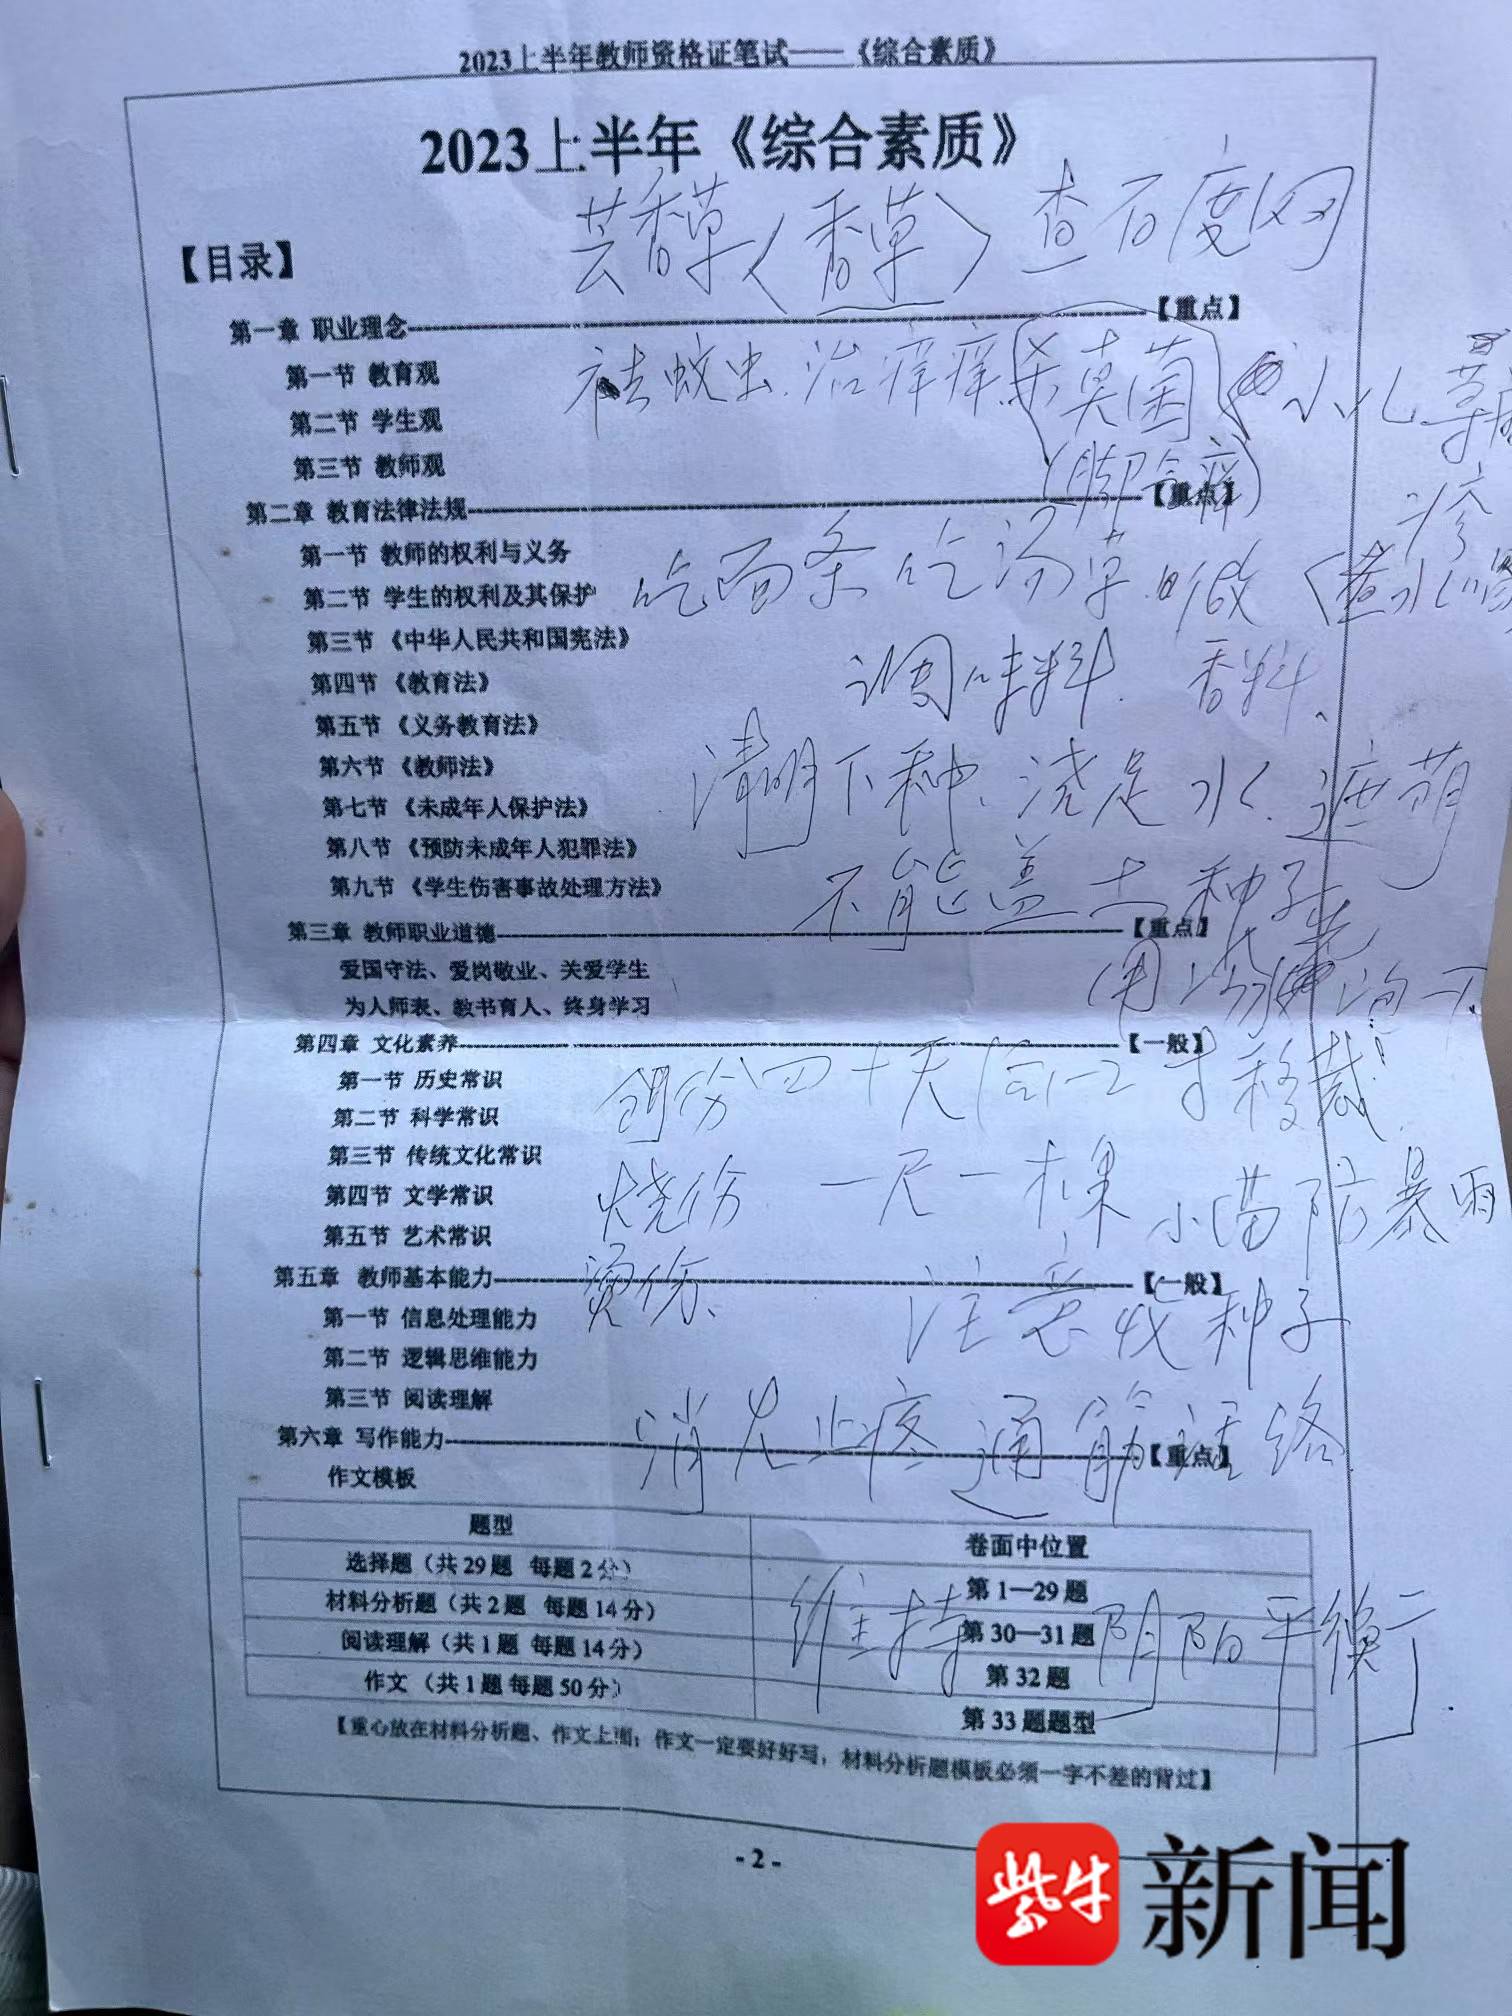 2023上半年教师资格证笔试——《综合素质》
2023上半年《综合素质》
芸香草(香草) 查百度网
【目录】
第一章 职业理念【重点】
第一节 教育观
祛蚊虫、治痒痒、杀真菌 小儿
第二节 学生观
第三节 教师观
(脚气癣)
第二章 教育法律法规【重点】
疹
第一节 教师的权利与义务
第二节 学生的权利及其保护
吃面条吃汤草
第三节 《中华人民共和国宪法》
第四节 《教育法》
调味料、香料、
第五节 《义务教育法》
第六节 《教师法》
清明下种、浇足水、遮荫
第七节 《未成年人保护法》
第八节 《预防未成年人犯罪法》
第九节 《学生伤害事故处理方法》
不能盖土 种子先
第三章 教师职业道德【重点】
爱国守法、爱岗敬业、关爱学生
为人师表、教书育人、终身学习
第四章 文化素养【一般】
第一节 历史常识
创伤 四十天后 移栽
第二节 科学常识
第三节 传统文化常识
第四节 文学常识
烧伤 一尺一棵 小苗防暴雨
第五节 艺术常识
第五章 教师基本能力【一般】
烫伤、 注意收种子
第一节 信息处理能力
第二节 逻辑思维能力
第三节 阅读理解
第六章 写作能力【重点】
消炎止疼通筋活络
作文模板
题型 卷面中位置
选择题（共29题 每题2分） 第1—29题
材料分析题（共2题 每题14分） 第30—31题
维持阴阳平衡.
阅读理解（共1题 每题14分） 第32题
作文（共1题 每题50分） 第33题题型
【重心放在材料分析题、作文上面；作文一定要好好写，材料分析题模板必须一字不差的背过】
-2-
紫牛 新闻